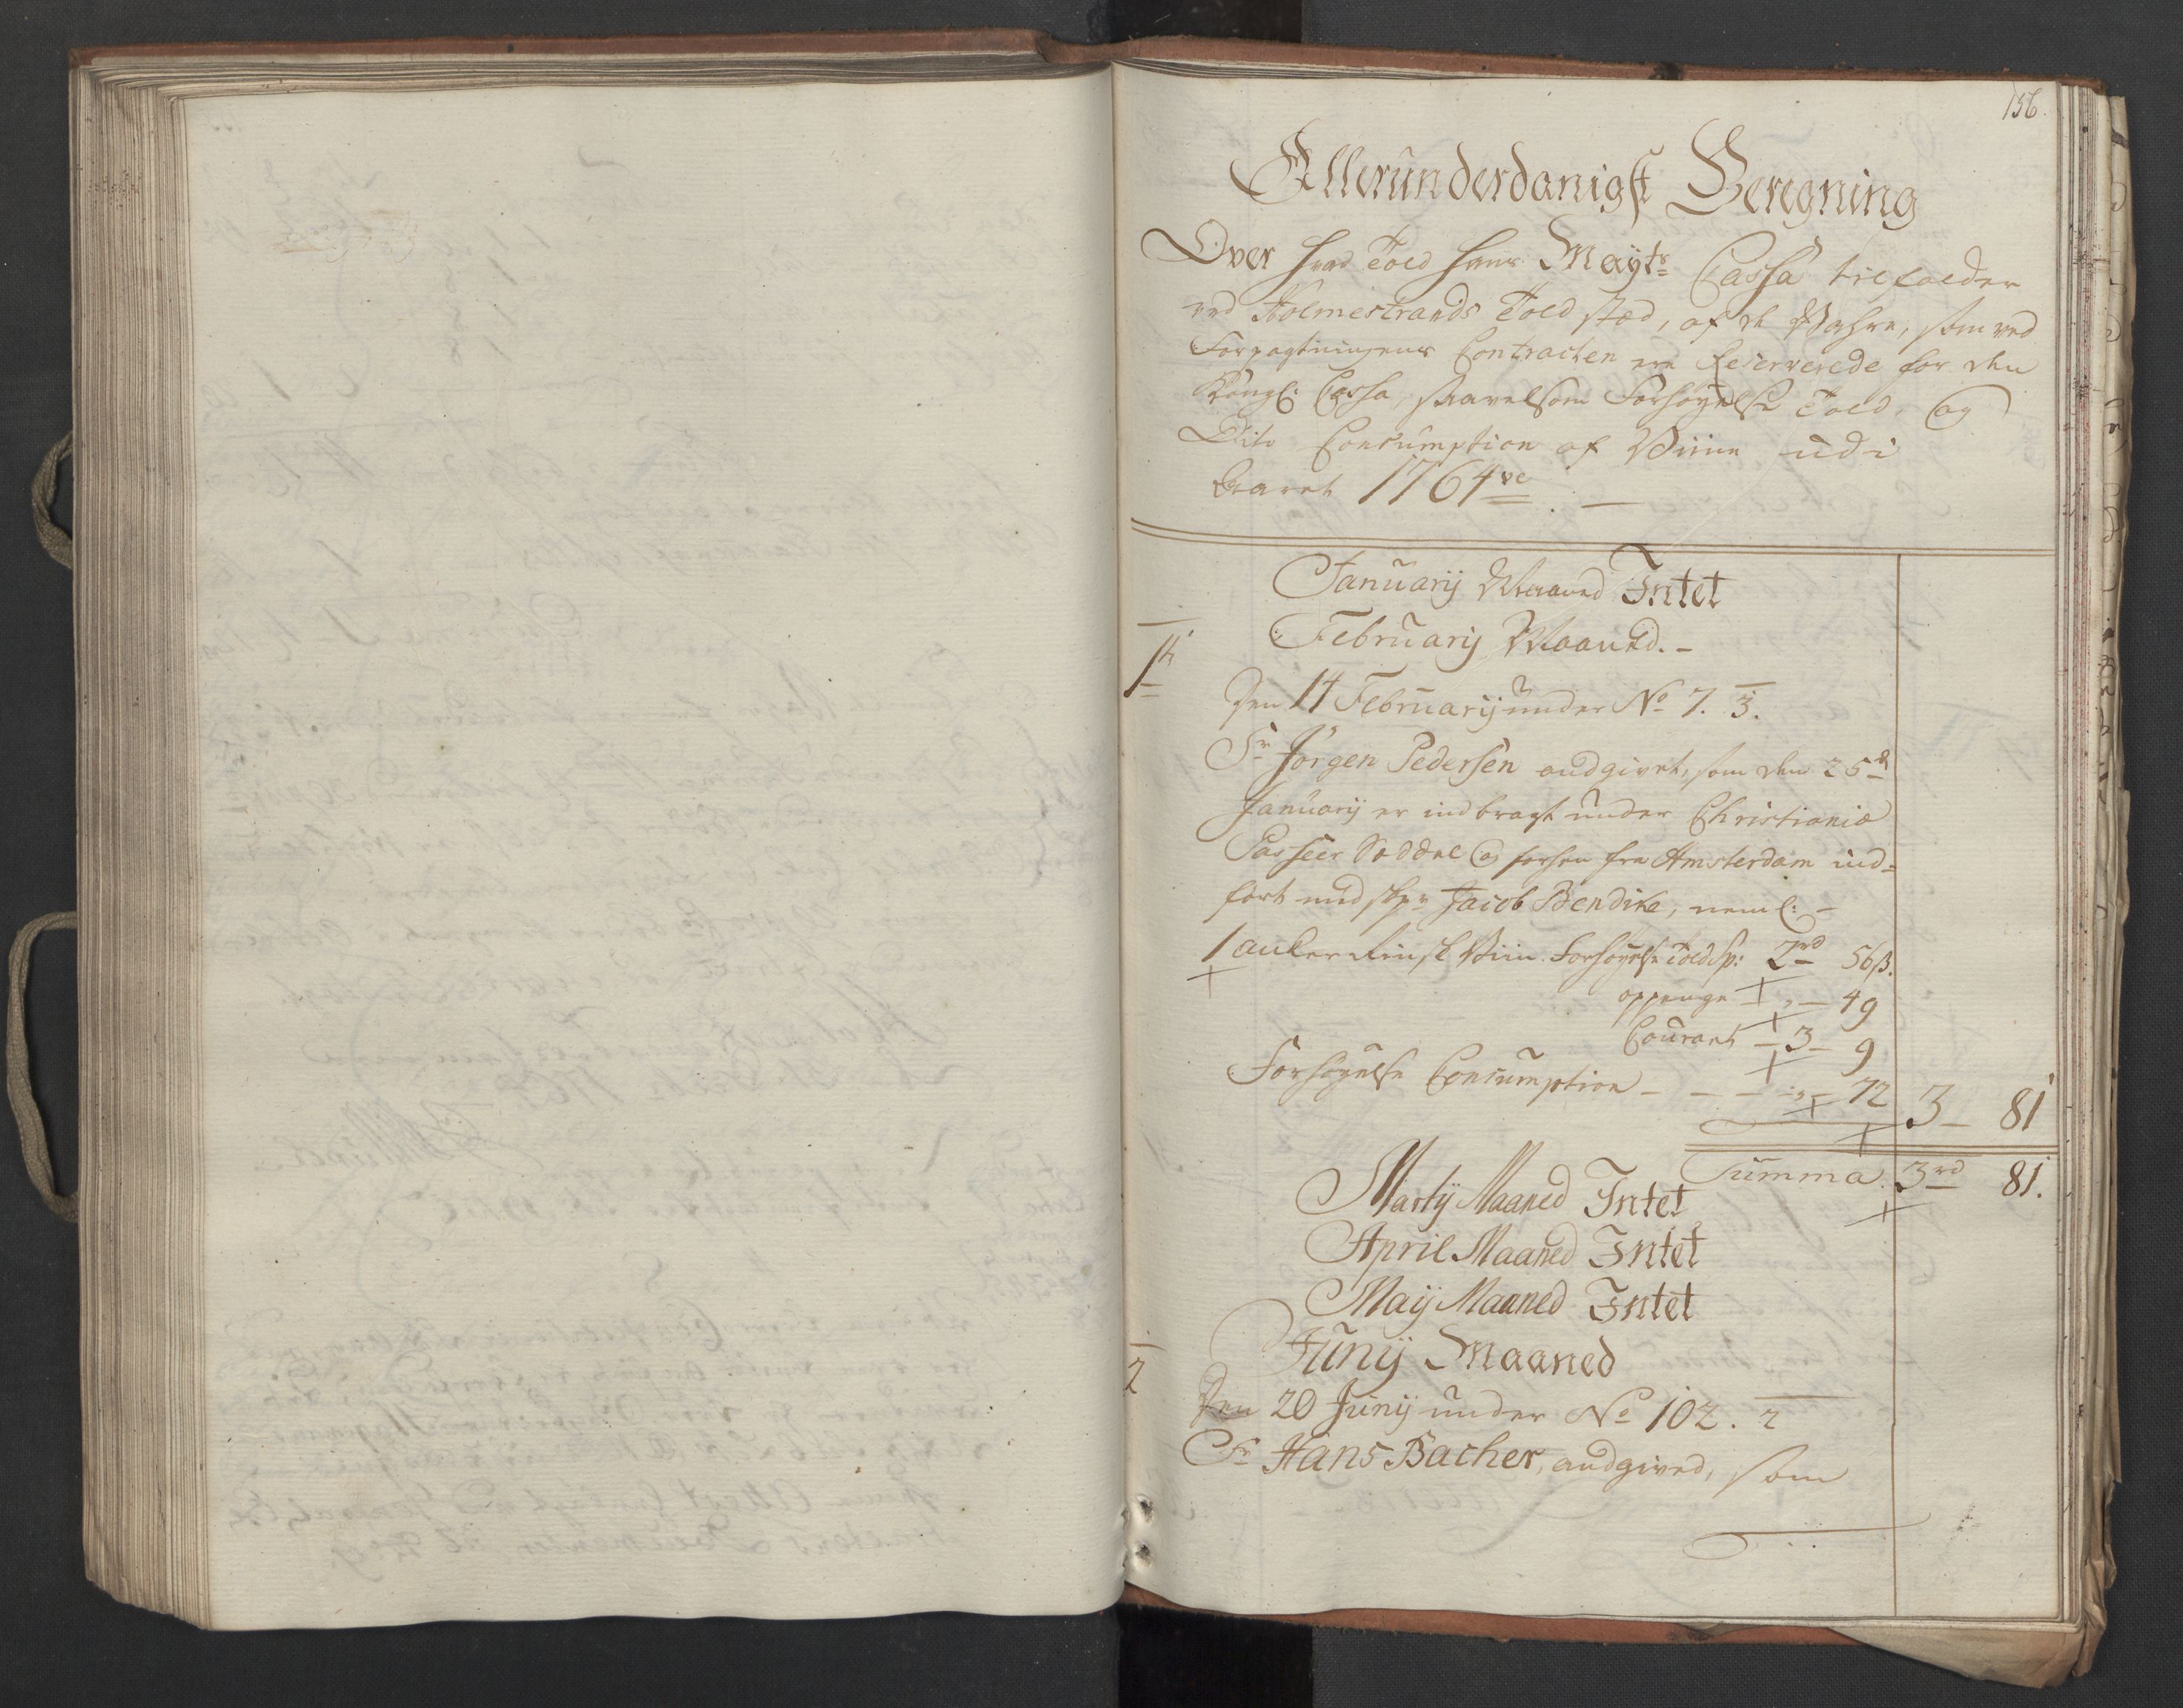 156.
Allerunderdanigst Beregning
Over hvad Told Hans Mayts Cassa tilfalder
ved Holmestrands Told stæd, af de Vahre, som ved
Forpagtningens Contracten ere Reserverede for den
Kongl: Cassa, saavelsom Forhøyelse Told, og
Dito Consumption af Viine udi
Aaret 1764ve. —
Januarij Maaned Intet
Februarij Maaned. –
1te
Den 14 Februarij under No 7. 3.
Sr Jørgen Pedersen andgivet, som den 25de
Januarij er indbragt under Christiania
Passeer Seddel og forhen fra Amsterdam ind-
ført med Skpr Jacob Bendixe, neml: –
1 anker Rinsk Viin. Forhøyelse Told Sp: 2rd 56ß.
oppenge „ — 49
Courant — 3 — 9
Forhøyelse Consumption — — — „ — 72 3 — 81
Summa 3rd 81.
Martij Maaned Intet
April Maaned Intet
Maij Maaned Intet
Junij Maaned
2
Den 20 Junij under No 102. 2
Sr Hans Bacher, andgived, som